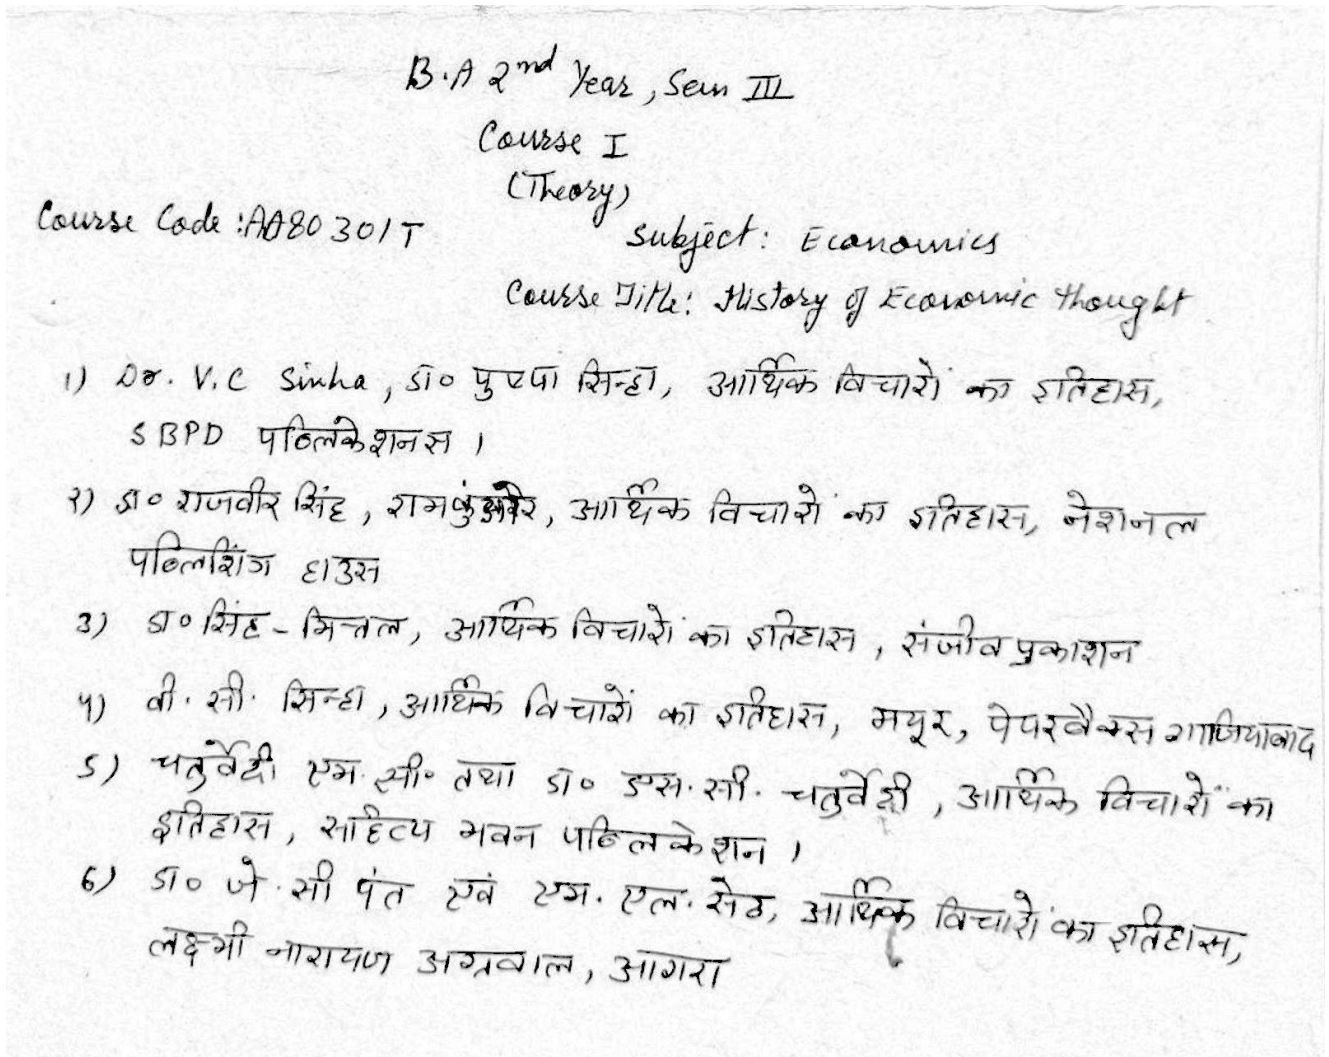 B.A 2nd Year, Sem III
Course I
(Theory)
Course Code: AA80301T
Subject: Economics
Course Title: History of Economic thought
1) Dr. V.C Sinha, डा० पुष्पा सिन्हा, आर्थिक विचारों का इतिहास,
SBPD पब्लिकेशनस।
२) डा० राजवीर सिंह, आर्थिक विचारों का इतिहास, नेशनल
पब्लिशिंग हाउस
3) डा० सिंह - मित्तल, आर्थिक विचारों का इतिहास, संजीव प्रकाशन
4) वी. सी. सिन्हा, आर्थिक विचारों का इतिहास, मयूर, पेपरबैक्स गाजियाबाद
5) चतुर्वेदी एम. सी० तथा डा० एस. सी. चतुर्वेदी, आर्थिक विचारों का
इतिहास, साहित्य भवन पब्लिकेशन।
6) डा० जे. सी पंत एवं एम. एल. सेठ, आर्थिक विचारों का इतिहास,
लक्ष्मी नारायण अग्रवाल, आगरा